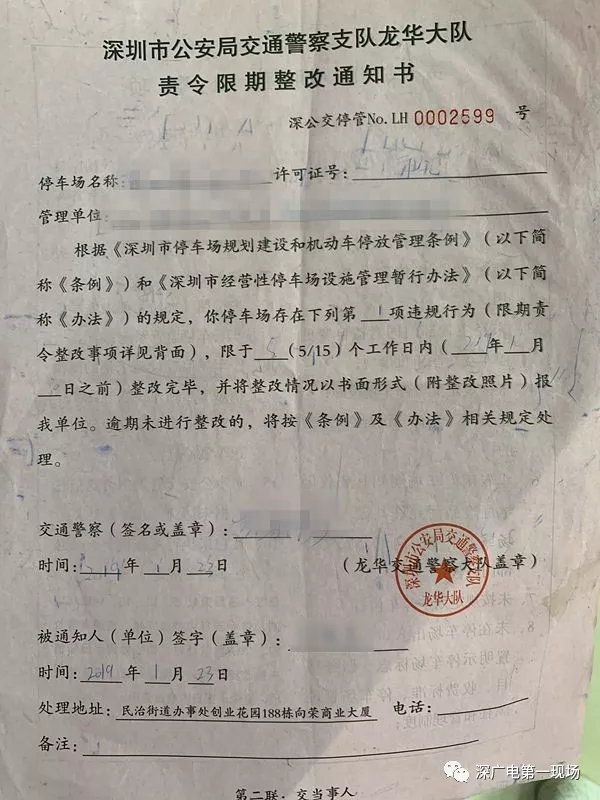 深圳市公安局交通警察支队龙华大队
责令限期整改通知书
深公交停管No.LH 0002599 号
停车场名称: 许可证号:
管理单位:
根据《深圳市停车场规划建设和机动车停放管理条例》(以下简
称《条例》)和《深圳市经营性停车场设施管理暂行办法》(以下简
称《办法》)的规定,你停车场存在下列第 1 项违规行为(限期责
令整改事项详见背面),限于 5 (5/15)个工作日内( 年 1 月
日之前)整改完毕,并将整改情况以书面形式(附整改照片)报
我单位。逾期未进行整改的,将按《条例》及《办法》相关规定处
理。
交通警察(签名或盖章):
时间: 2019 年 1 月 23 日
(龙华交通警察大队盖章)
深圳市公安局交通警察支队
龙华大队
被通知人(单位)签字(盖章):
时间: 2019 年 1 月 23 日
处理地址: 民治街道办事处创业花园188栋向荣商业大厦 电话:
备注:
第二联:交当事人
深广电第一现场